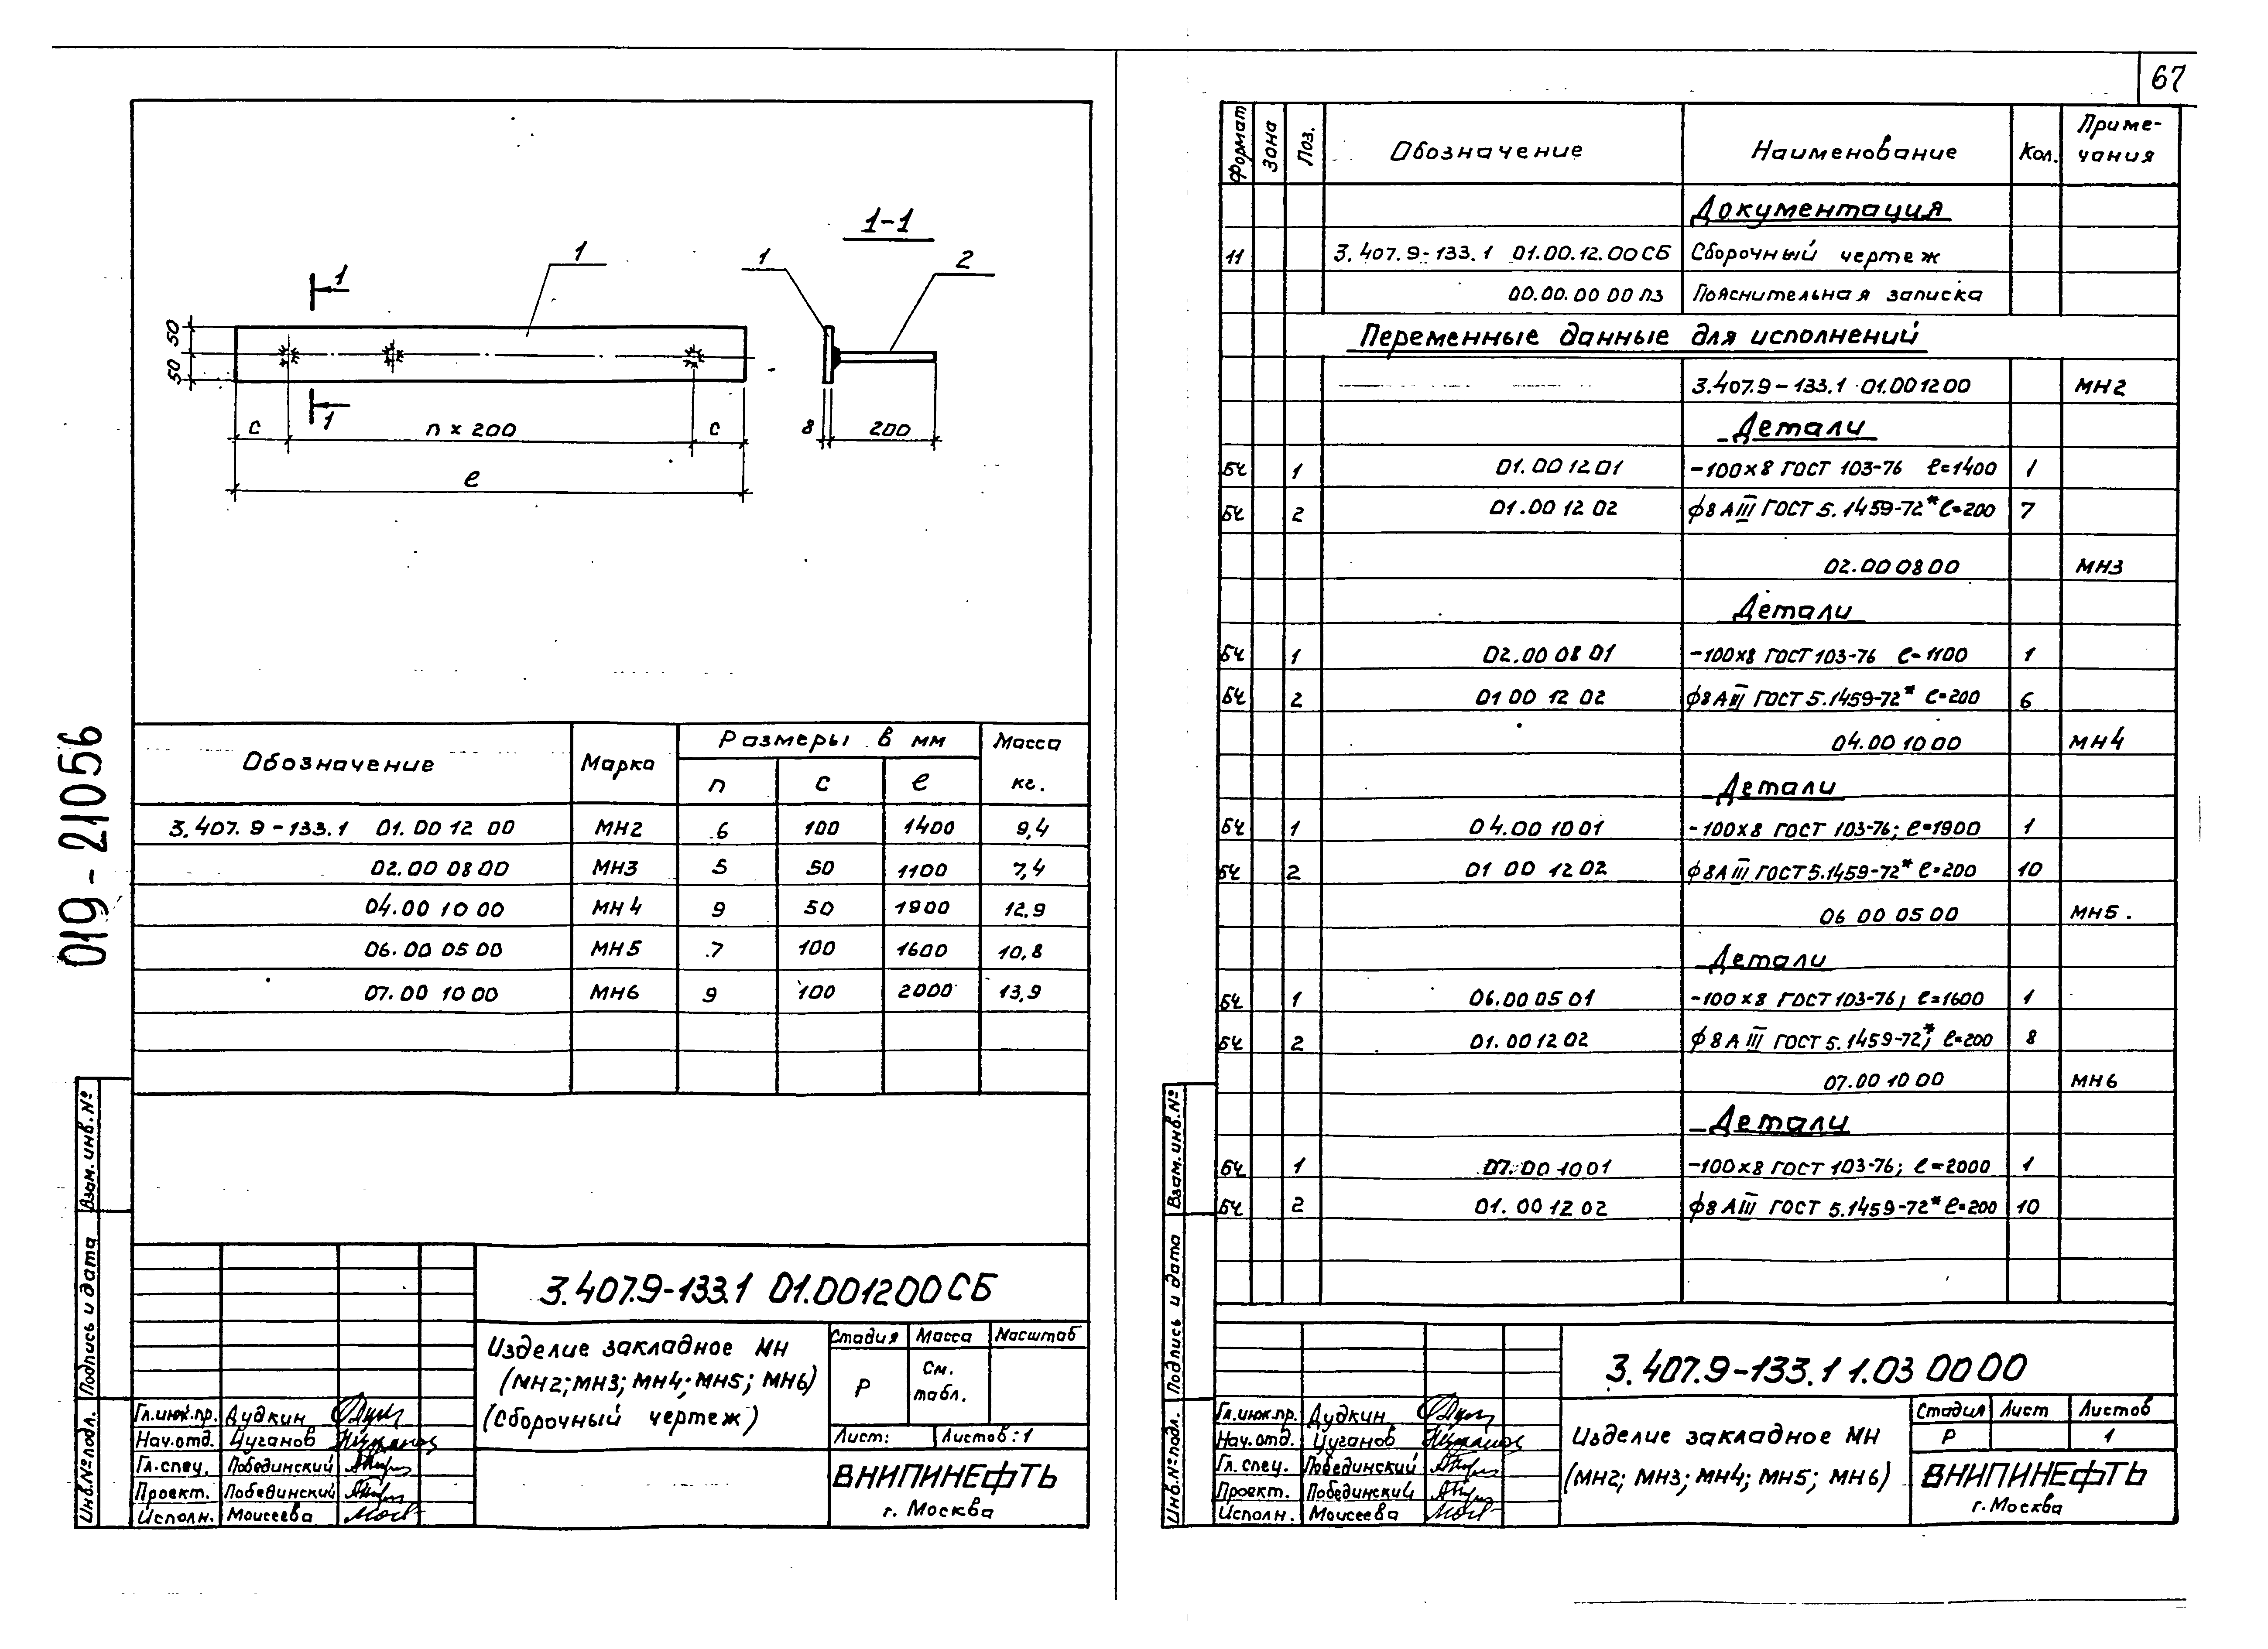 67
019-21056
1-1
1
1
1
2
1
50
50
c
n x 200
c
8
200
ℓ
Обозначение Марка Размеры в мм Масса кг.
n c ℓ
3.407.9-133.1 01.00 12 00 МН2 6 100 1400 9,4
02.00 08 00 МН3 5 50 1100 7,4
04.00 10 00 МН4 9 50 1900 12,9
06.00 05 00 МН5 7 100 1600 10,8
07.00 10 00 МН6 9 100 2000 13,9
Взам. инв. №
Подпись и дата
Инв. № подл.
3.407.9-133.1 01.001200СБ
Изделие закладное МН
(МН2; МН3; МН4; МН5; МН6)
(Сборочный чертеж)
Стадия Масса Масштаб
Р См. табл.
Лист: Листов: 1
ВНИПИНЕФТЬ
г. Москва
Гл. инж. пр. Дудкин
Нач. отд. Цуганов
Гл. спец. Побединский
Проект. Побединский
Исполн. Моисеева
Формат Зона Поз. Обозначение Наименование Кол. Приме-
чания
Документация
11 3.407.9-133.1 01.00.12.00СБ Сборочный чертеж
00.00.00 00 ПЗ Пояснительная записка
Переменные данные для исполнений
3.407.9-133.1 01.001200 МН2
Детали
БЧ 1 01.001201 -100x8 ГОСТ 103-76 ℓ=1400 1
БЧ 2 01.00 12 02 ф8 AIII ГОСТ 5.1459-72* ℓ=200 7
02.00 08 00 МН3
Детали
БЧ 1 02.00 08 01 -100x8 ГОСТ 103-76 ℓ=1100 1
БЧ 2 01 00 12 02 ф8 AIII ГОСТ 5.1459-72* ℓ=200 6
04.00 10 00 МН4
Детали
БЧ 1 04.00 10 01 -100x8 ГОСТ 103-76; ℓ=1900 1
БЧ 2 01 00 12 02 ф8 AIII ГОСТ 5.1459-72* ℓ=200 10
06 00 05 00 МН5.
Детали
БЧ 1 06.00 05 01 -100x8 ГОСТ 103-76; ℓ=1600 1
БЧ 2 01.00 12 02 ф8 AIII ГОСТ 5.1459-72*; ℓ=200 8
07.00 10 00 МН6
Детали
БЧ 1 07.00 10 01 -100x8 ГОСТ 103-76; ℓ=2000 1
БЧ 2 01.00 12 02 ф8 AIII ГОСТ 5.1459-72* ℓ=200 10
Взам. инв. №
Подпись и дата
Инв. № подл.
3.407.9-133.1 1.03 00 00
Изделие закладное МН
(МН2; МН3; МН4; МН5; МН6)
Стадия Лист Листов
Р 1
ВНИПИНЕФТЬ
г. Москва
Гл. инж. пр. Дудкин
Нач. отд. Цуганов
Гл. спец. Побединский
Проект. Побединский
Исполн. Моисеева